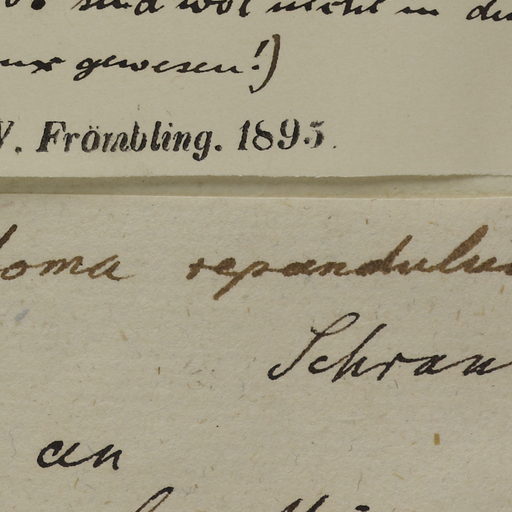 sind wol nicht in
gewesen!)
W. Frömbling. 1895.
loma repandulu
Schran
an